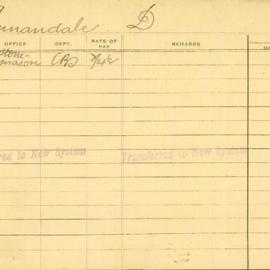 nnandale D
OFFICE DEPT. RATE OF PAY REMARKS
Stone-
mason
red to New System Transferred to New System